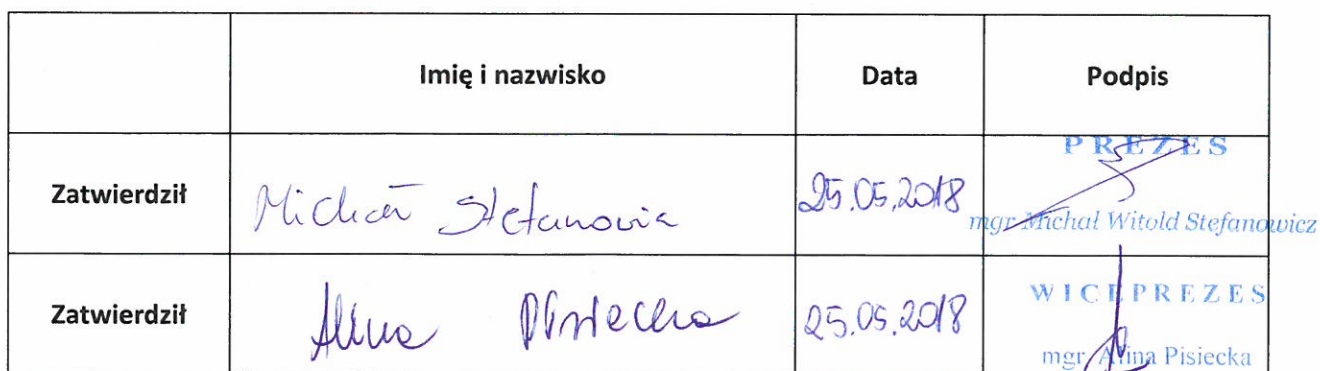 Imię i nazwisko Data Podpis
Zatwierdził Michał Stefanowicz 25.05.2018 PREZES
mgr Michał Witold Stefanowicz
Zatwierdził Alina Pisiecka 25.05.2018 WICEPREZES
mgr Alina Pisiecka